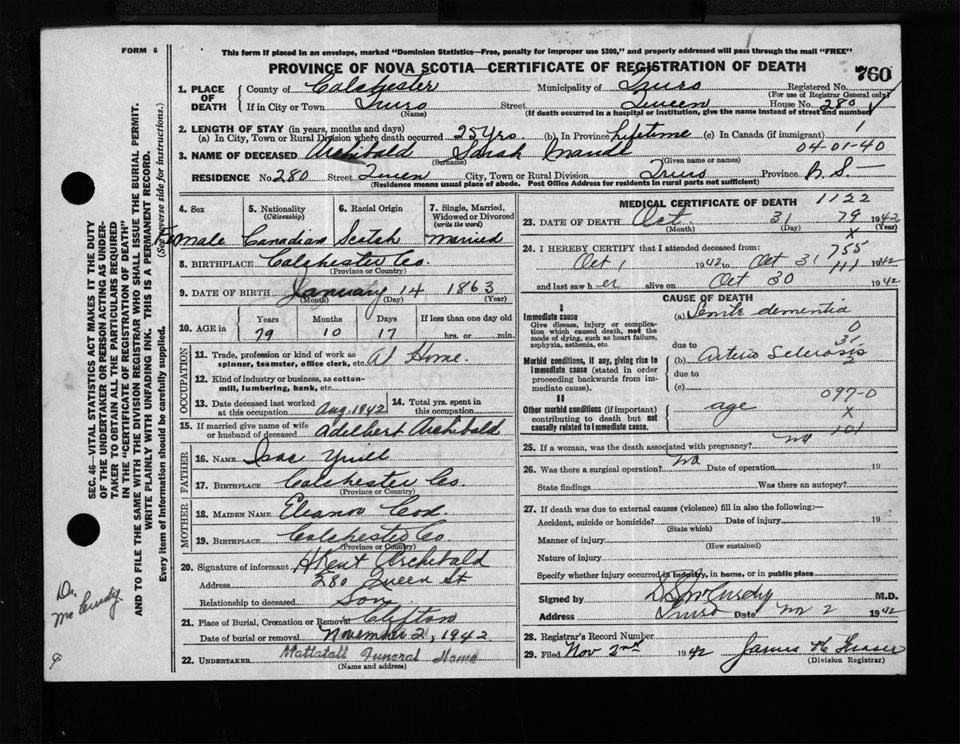 FORM 6
This form if placed in an envelope, marked "Dominion Statistics—Free, penalty for improper use $300," and properly addressed will pass through the mail "FREE"
PROVINCE OF NOVA SCOTIA—CERTIFICATE OF REGISTRATION OF DEATH
760
1. PLACE OF DEATH
County of Colchester Municipality of Truro Registered No.
(For use of Registrar General only)
If in City or Town Truro Street Queen House No. 280
(Name) (If death occurred in a hospital or institution, give the name instead of street and number)
2. LENGTH OF STAY (in years, months and days)
(a) In City, Town or Rural Division where death occurred 25 yrs. (b) In Province Lifetime (c) In Canada (if immigrant) 1
04-01-40
3. NAME OF DECEASED Archibald Sarah
(Surname) (Given name or names)
RESIDENCE No. 280 Street Queen City, Town or Rural Division Truro Province N.S.
(Residence means usual place of abode. Post Office Address for residents in rural parts not sufficient)
4. Sex Female
5. Nationality (Citizenship) Canadian
6. Racial Origin Scotch
7. Single, Married, Widowed or Divorced (write the word) Married
8. BIRTHPLACE Colchester Co.
(Province or Country)
9. DATE OF BIRTH January 14 1863
(Month) (Day) (Year)
10. AGE in Years Months Days If less than one day old
79 10 17 hrs. or min.
OCCUPATION
11. Trade, profession or kind of work as spinner, teamster, office clerk, etc. At Home.
12. Kind of industry or business, as cotton-mill, lumbering, bank, etc.
13. Date deceased last worked at this occupation Aug. 1942
14. Total yrs. spent in this occupation
15. If married give name of wife or husband of deceased Adelbert Archibald
FATHER
16. NAME Isac Yuill
17. BIRTHPLACE Colchester Co.
(Province or Country)
MOTHER
18. MAIDEN NAME Eleanor Cox
19. BIRTHPLACE Colchester Co.
(Province or Country)
20. Signature of informant H Kent Archibald
Address 280 Queen St
Relationship to deceased Son
21. Place of Burial, Cremation or Removal Clifton
Date of burial or removal November 2, 1942
22. UNDERTAKER Mattatall Funeral Home
(Name and address)
MEDICAL CERTIFICATE OF DEATH 1122
23. DATE OF DEATH Oct 31 79 1942
(Month) (Day) (Year)
x
24. I HEREBY CERTIFY that I attended deceased from: 755
Oct 1 1942 to Oct 31 1942
111
and last saw her alive on Oct 30 1942
CAUSE OF DEATH
I
Immediate cause
Give disease, injury or complication which caused death, not the mode of dying, such as heart failure, asphyxia, asthenia, etc.
(a) Senile dementia
0
due to 31
Morbid conditions, if any, giving rise to immediate cause (stated in order proceeding backwards from immediate cause).
(b) Arterio Sclerosis
2
due to
(c)
097-0
II
Other morbid conditions (if important) contributing to death but not causally related to immediate cause.
age
x
101
25. If a woman, was the death associated with pregnancy? no
26. Was there a surgical operation? no Date of operation 19
State findings Was there an autopsy?
27. If death was due to external causes (violence) fill in also the following:—
Accident, suicide or homicide? Date of injury 19
(State which)
Manner of injury
(How sustained)
Nature of injury
Specify whether injury occurred in industry, in home, or in public place
Signed by McCurdy M.D.
Address Truro Date 2 1942
28. Registrar's Record Number
29. Filed Nov 2nd 1942 James Fraser
(Division Registrar)
SEC. 46—VITAL STATISTICS ACT MAKES IT THE DUTY
OF THE UNDERTAKER OR PERSON ACTING AS UNDERTAKER TO OBTAIN ALL THE PARTICULARS REQUIRED
IN THE "CERTIFICATE OF REGISTRATION OF DEATH"
AND TO FILE THE SAME WITH THE DIVISION REGISTRAR WHO SHALL ISSUE THE BURIAL PERMIT.
WRITE PLAINLY WITH UNFADING INK. THIS IS A PERMANENT RECORD.
Every item of Information should be carefully supplied. (See reverse side for instructions.)
Dr.
McCurdy